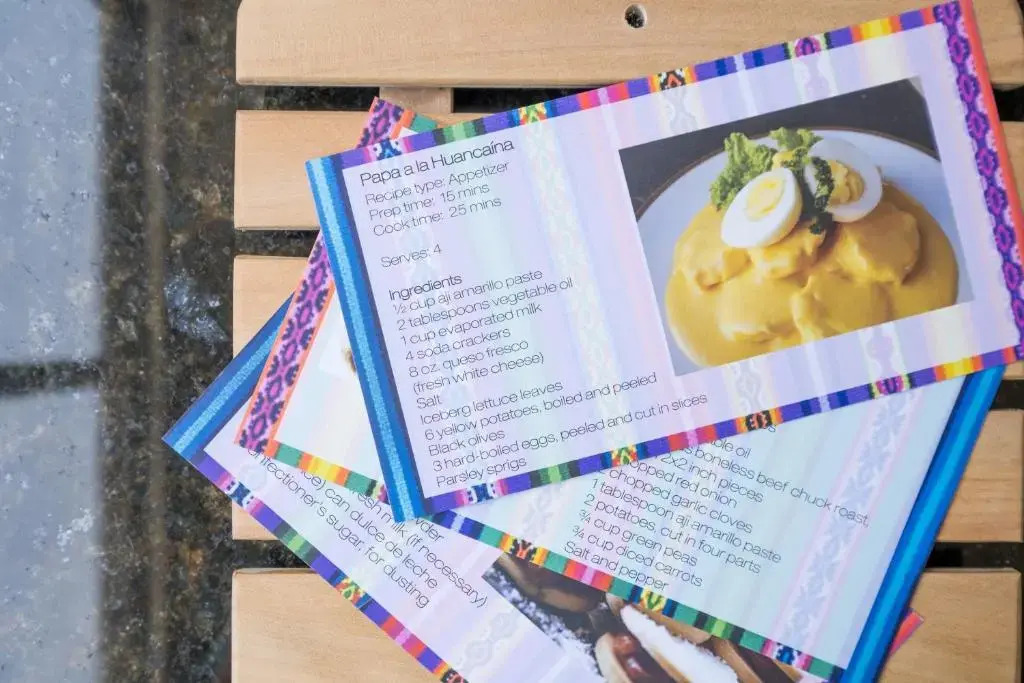 Papa a la Huancaína
Recipe type: Appetizer
Prep time: 15 mins
Cook time: 25 mins
Serves: 4
Ingredients
½ cup aji amarillo paste
2 tablespoons vegetable oil
1 cup evaporated milk
4 soda crackers
8 oz. queso fresco
(fresh white cheese)
Salt
Iceberg lettuce leaves
6 yellow potatoes, boiled and peeled
Black olives
3 hard-boiled eggs, peeled and cut in slices
Parsley sprigs
oil
boneless beef chuck roast,
2x2 inch pieces
chopped red onion
chopped garlic cloves
1 tablespoon aji amarillo paste
2 potatoes, cut in four parts
¾ cup green peas
¾ cup diced carrots
Salt and pepper
fresh milk (if necessary)
can dulce de leche
confectioner's sugar, for dusting